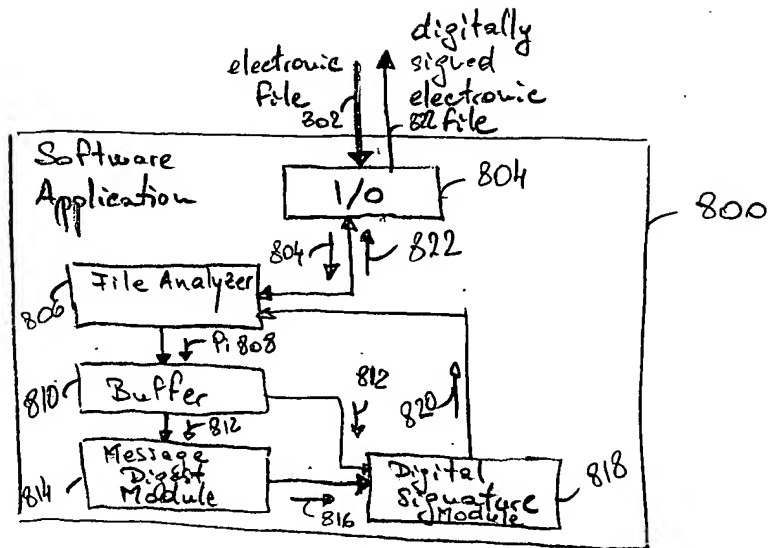 electronic
file
302
digitally
signed
electronic
822 file
Software
Application
I/O
804
800
804
822
File Analyzer
806
Pi 808
Buffer
810
812
812
820
Message
Digest
Module
814
816
Digital
Signature
Module
818